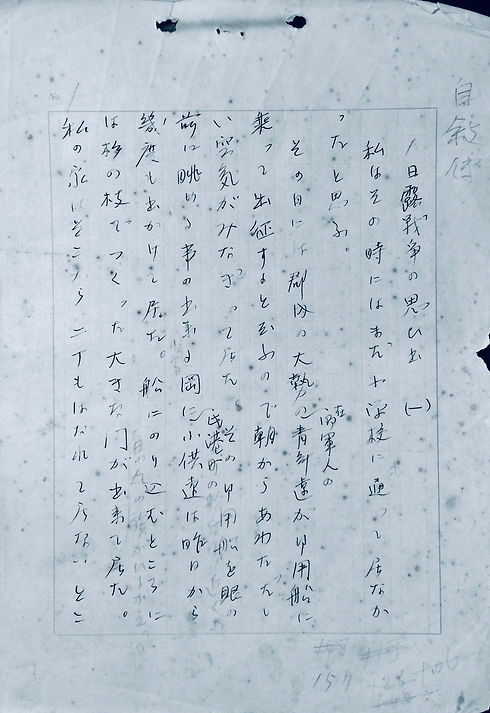 No. 1
自叙伝
1 日露戦争の思ひ出 (一)
私はその時にはまだ小学校に通って居なか
ったと思ふ。
その日には郡内の大勢の在郷軍人の青年達が御用船に
乗って出征すると云ふので朝からあわただし
い空気がみなぎって居た。その御用船を眼の
前に眺める事の出来る岡に小供達は昨日から
幾度も出かけて居た。船にのり込むところに
は杉の枝でつくった大きな門が出来て居た。
私の家はそこから二丁もはなれて居ないとこ
157